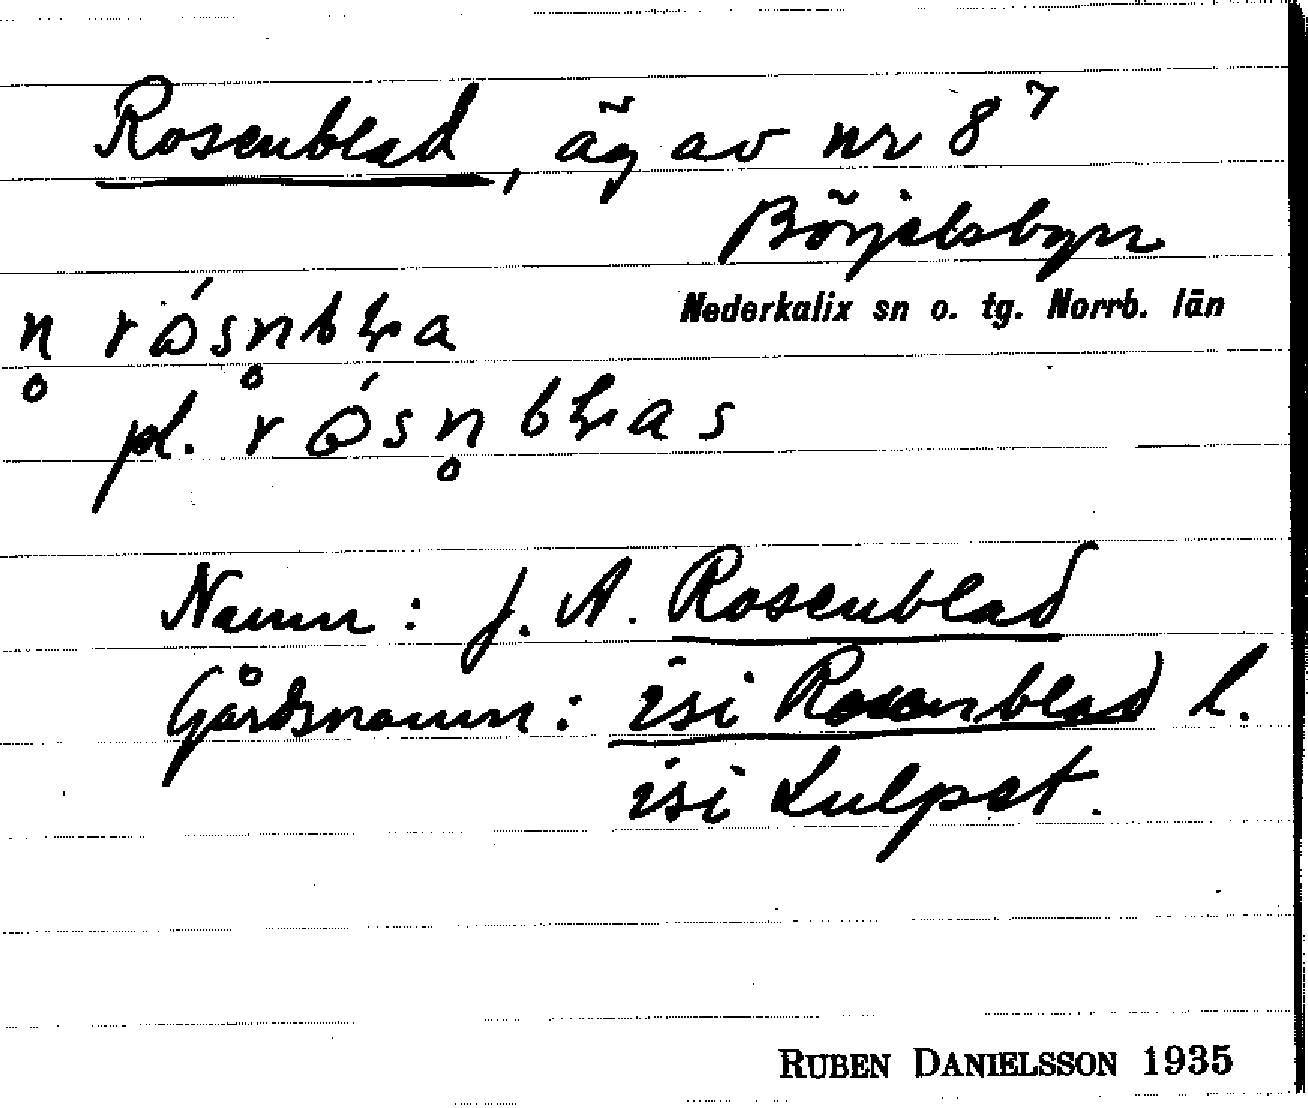 Rosenblad, äg av nr 8⁷
Börjelsbyn
Nederkalix sn o. tg. Norrb. län
n̥
pl.
Namn: J. A. Rosenblad
Gårdsnamn: isi Rosenblad l.
isi Lulpet.
RUBEN DANIELSSON 1935